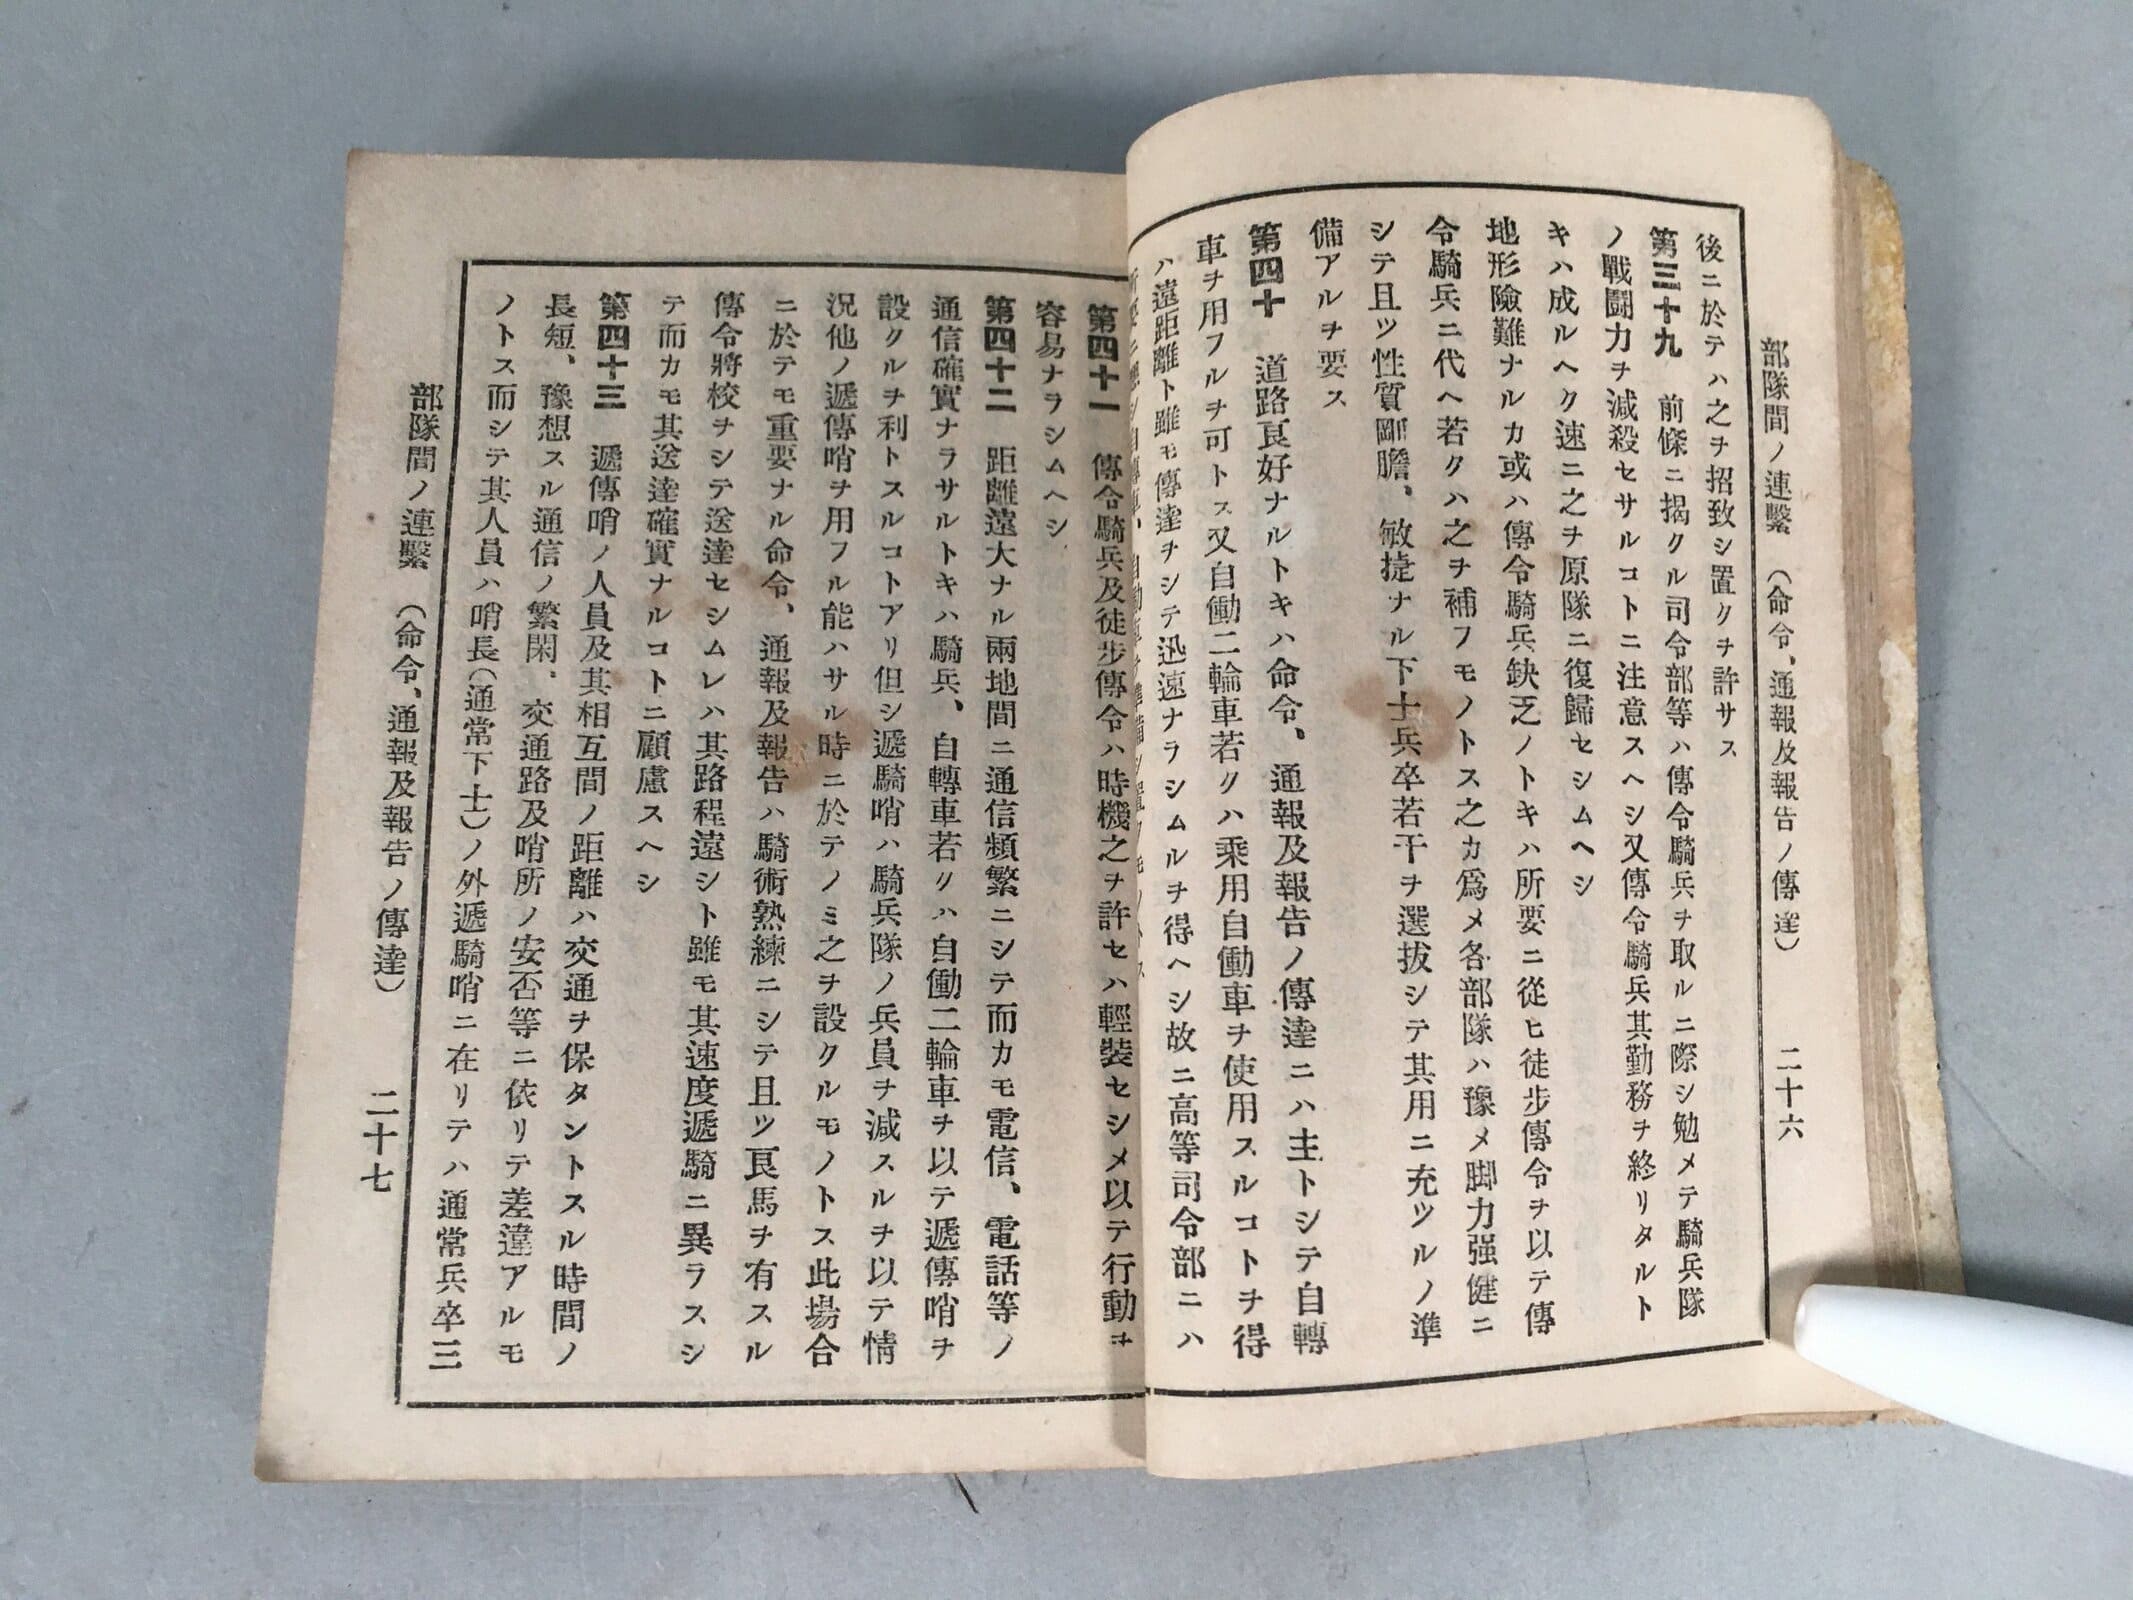 部隊間ノ連繫 (命令、通報及報告ノ傳達) 二十六
後ニ於テハ之ヲ招致シ置クヲ許サス
第三十九 前條ニ揭クル司令部等ハ傳令騎兵ヲ取ルニ際シ勉メテ騎兵隊
ノ戰鬪力ヲ減殺セサルコトニ注意スヘシ又傳令騎兵其勤務ヲ終リタルト
キハ成ルヘク速ニ之ヲ原隊ニ復歸セシムヘシ
地形險難ナルカ或ハ傳令騎兵缺乏ノトキハ所要ニ從ヒ徒步傳令ヲ以テ傳
令騎兵ニ代ヘ若クハ之ヲ補フモノトス之カ爲メ各部隊ハ豫メ脚力强健ニ
シテ且ツ性質剛膽、敏捷ナル下士兵卒若干ヲ選拔シテ其用ニ充ツルノ準
備アルヲ要ス
第四十 道路良好ナルトキハ命令、通報及報告ノ傳達ニハ主トシテ自轉
車ヲ用フルヲ可トス又自働二輪車若クハ乘用自働車ヲ使用スルコトヲ得
ハ遠距離ト雖モ傳達ヲシテ迅速ナラシムルヲ得ヘシ故ニ高等司令部ニハ
第四十一 傳令騎兵及徒步傳令ハ時機之ヲ許セハ輕裝セシメ以テ行動ヲ
容易ナラシムヘシ
第四十二 距離遠大ナル兩地間ニ通信頻繁ニシテ而カモ電信、電話等ノ
通信確實ナラサルトキハ騎兵、自轉車若クハ自働二輪車ヲ以テ遞傳哨ヲ
設クルヲ利トスルコトアリ但シ遞騎哨ハ騎兵隊ノ兵員ヲ減スルヲ以テ情
況他ノ遞傳哨ヲ用フル能ハサル時ニ於テノミ之ヲ設クルモノトス此場合
ニ於テモ重要ナル命令、通報及報告ハ騎術熟練ニシテ且ツ良馬ヲ有スル
傳令將校ヲシテ送達セシムレハ其路程遠シト雖モ其速度遞騎ニ異ラスシ
テ而カモ其送達確實ナルコトニ顧慮スヘシ
第四十三 遞傳哨ノ人員及其相互間ノ距離ハ交通ヲ保タントスル時間ノ
長短、豫想スル通信ノ繁閑、交通路及哨所ノ安否等ニ依リテ差違アルモ
ノトス而シテ其人員ハ哨長(通常下士)ノ外遞騎哨ニ在リテハ通常兵卒三
部隊間ノ連繫 (命令、通報及報告ノ傳達) 二十七